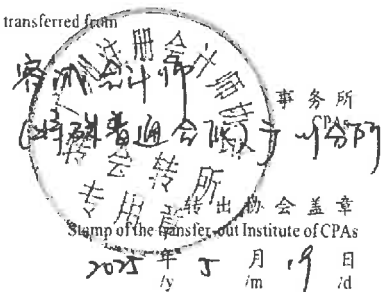 transferred from
容诚会计师
事务所
(特殊普通合伙)广州分所
CPAs
转会转所
专用章
转出协会盖章
Stamp of the transfer-out Institute of CPAs
2025 年 5 月 19 日
/y /m /d